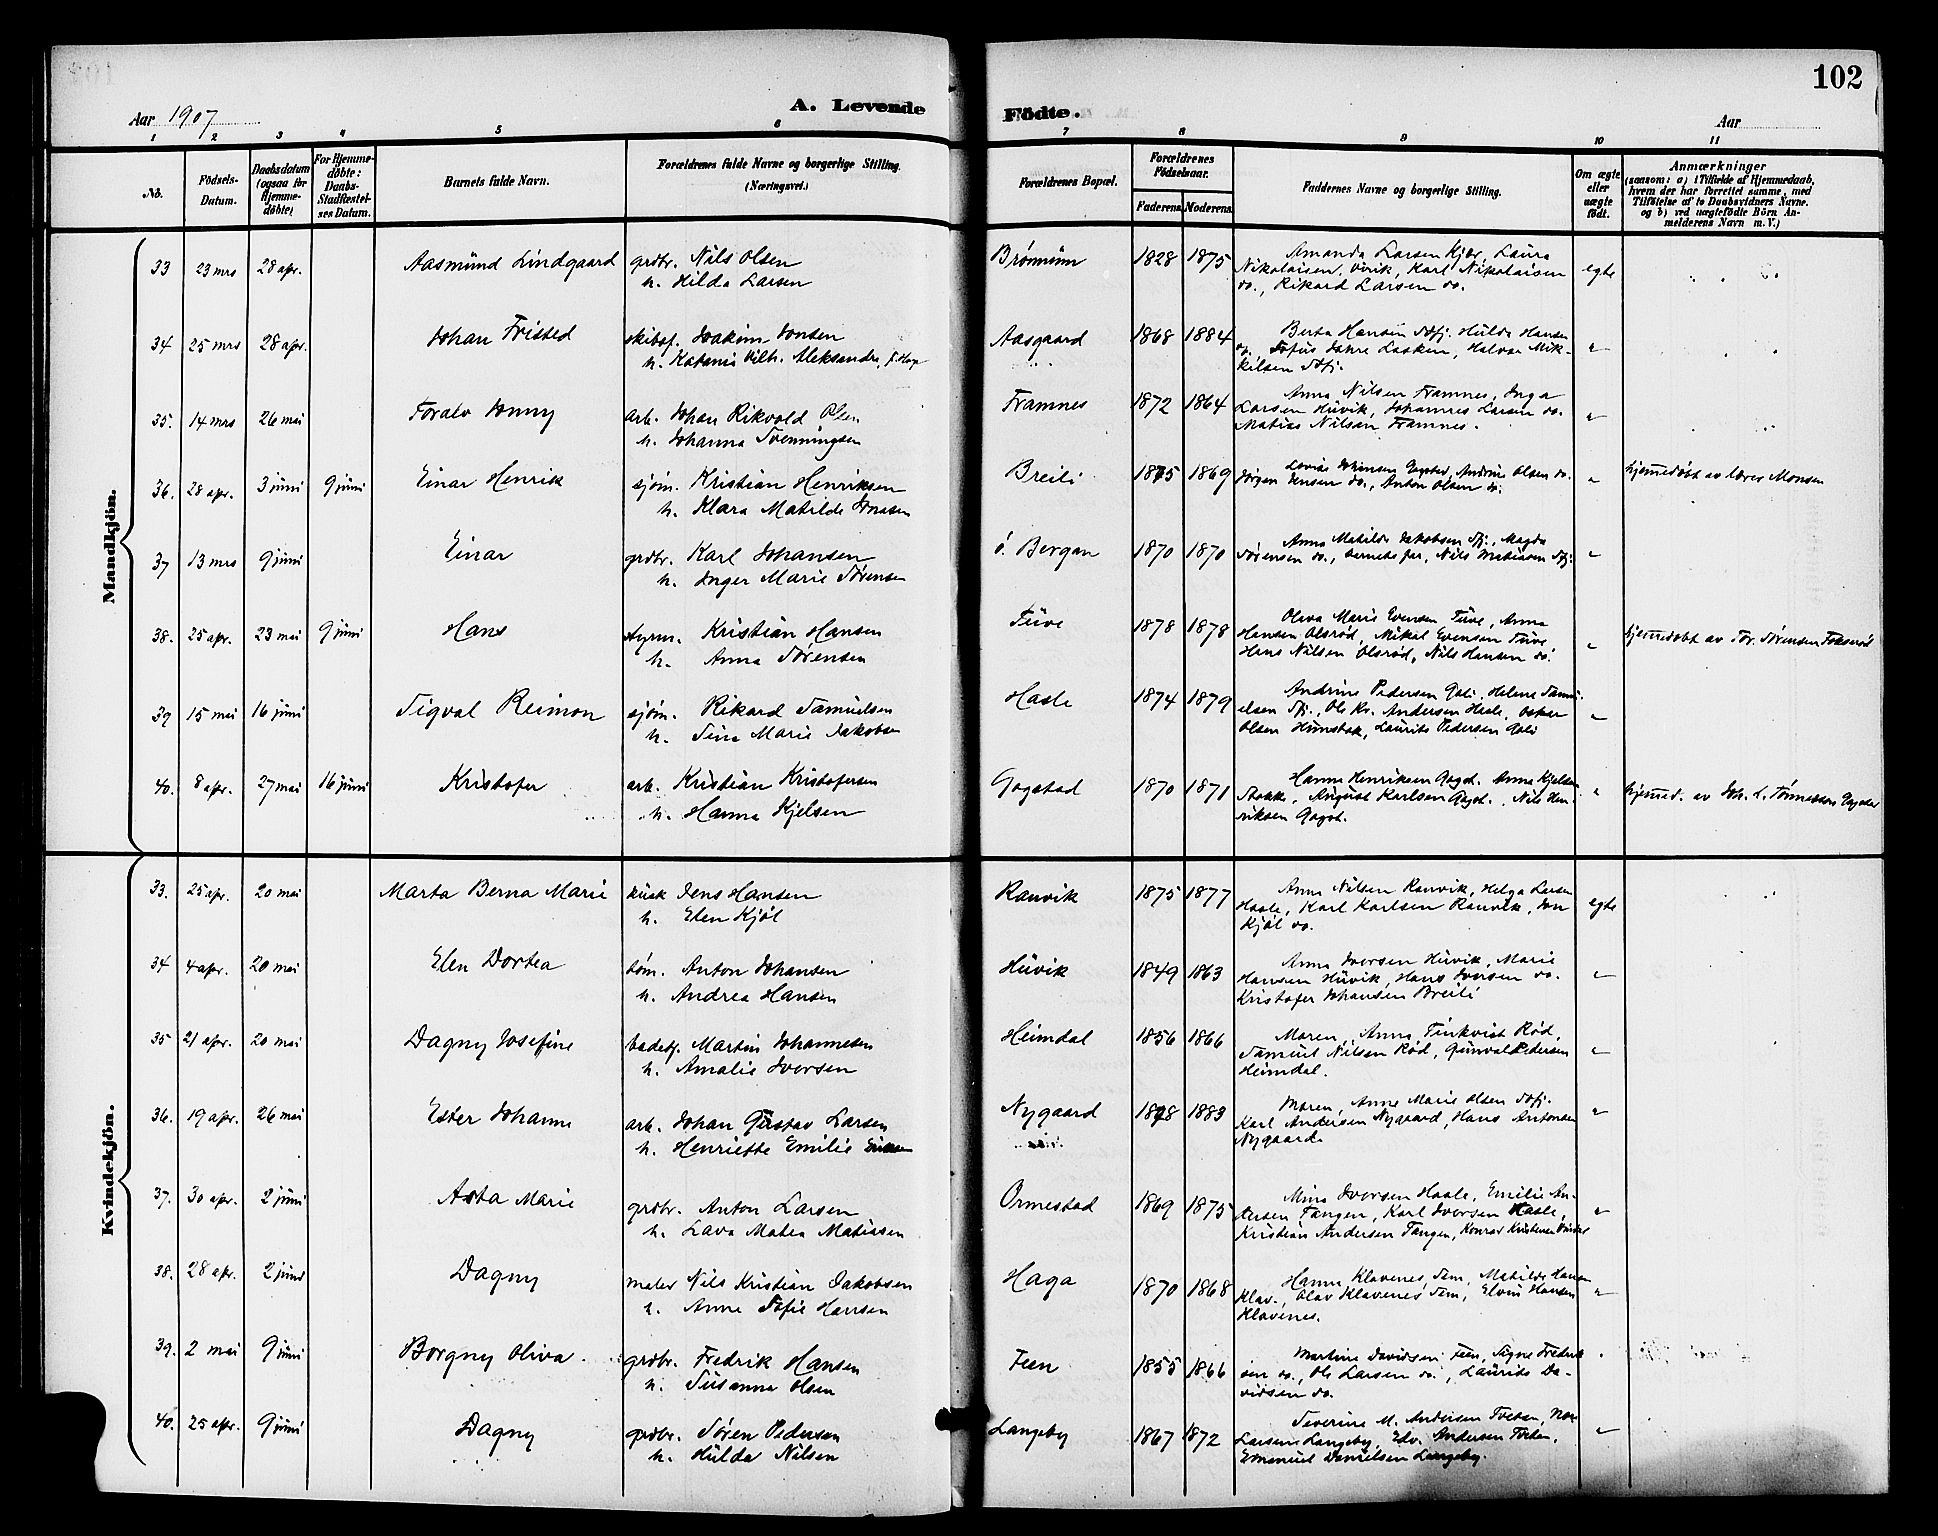 102
Aar 1907
A. Levende
Födte.
Aar
1 2 3 4 5 6 7 8 9 10 11
No.
Födsels-
Datum.
Daabsdatum
(ogsaa for
Hjemme-
döbte)
For Hjemme-
döbte:
Daabs-
Stadfæstel-
ses Datum.
Barnets fulde Navn.
Forældrenes fulde Navne og borgerlige Stilling.
(Næringsvei.)
Forældrenes Bopæl.
Forældrenes
Födselsaar.
Faderens. Moderens.
Faddernes Navne og borgerlige Stilling.
Om ægte
eller
uægte
födt.
Anmærkninger
(saasom: a) i Tilfælde af Hjemmedaab,
hvem der har forrettet samme, med
Tilföielse af to Daabsvidners Navne.
og b) ved uægtefödte Börn An-
melderens Navn m. V.)
Mandkjön.
33 23 mrs 28 apr. Aasmund Lindgaard grdbr. Nils Olsen
h. Hilda Larsen
Brønnum 1828 1875 Amanda Larsen Kjær, Laura
Nikolaisen Virik, Karl Nikolaisen
do., Rikard Larsen do.
egte
34 25 mrs 28 apr. Johan Fristed skibsf. Joakim Jonsen
h. Katarine Vilh. Aleksandra,
Aasgaard 1868 1884 Berta Hansen Sdfj. Hulda Hansen
do., Sofus Jahre Lasken, Halvor Mik-
kelsen Sdfj.
"
35. 14 mrs 26 mai Toralv Jonny arb. Johan Rikvold Olsen
h. Johanna Svenningsen
Framnes 1872 1864 Anna Nilsen Framnes, Inga
Larsen Huvik, Johannes Larsen do.
Matias Nilsen Framnes.
"
36. 28 apr. 3 juni 9 juni Einar Henrik sjøm. Kristian Henriksen
h. Klara Matilde Jonasen
Breili 1875 1869 Lovise Johnsen Gogstad, Andrine Olsen do.
Jörgen Jensen do., Anton Olsen do.
" hjemmedøbt av lærer Monsen
37 13 mrs 9 juni Einar grdbr. Karl Johansen
h. Inger Marie Sørensen
ö. Bergan 1870 1870 Anna Matilde Jakobsen Sfj., Magda
Sørensen do., barnets far, Nils Matiasen Sfj.
"
38. 25 apr. 23 mai 9 juni Hans styrm. Kristian Hansen
h. Anna Sørensen
Tuve 1878 1878 Oliva Marie Evensen Tuve, Anna
Hansen Olsrød, Mikal Evensen Tuve
Hans Nilsen Olsrød, Nils Hansen do.
" hjemmedøbt av Tor. Sørensen Fokserød
39 15 mai 16 juni Sigval Reimon sjøm. Rikard Samuelsen
h. Sina Marie Jakobsen
Hasle 1874 1879 Andrine Pedersen Goli, Helene Samu-
elsen Sfj., Ole Kr. Andersen Hasle, Oskar
Olsen Hunstok, Laurits Pedersen Goli
"
40. 8 apr. 27 mai 16 juni Kristofer arb. Kristian Kristofersen
h. Hanna Kjelsen
Gogstad 1870 1871 Hanna Henriksen Gogst. Anna Kjelsen
Stokke, August Karlsen Gogst., Nils Hen-
riksen Gogst.
" hjemmed. av Joh. L. Tønnessen Gogstad
Kvindekjön.
33. 25 apr. 20 mai Marta Berna Marie kusk Jens Hansen
h. Elen Kjøl
Ranvik 1875 1877 Anna Nilsen Ranvik, Helga Larsen
Hasle, Karl Karlsen Ranvik, Jon
Kjøl do.
egte
34 4 apr. 20 mai Elen Dortea tøm. Anton Johansen
h. Andrea Hansen
Huvik 1849 1863 Anna Iversen Huvik, Marie
Hansen Huvik, Hans Iversen do.
Kristofer Johansen Breili
"
35 21 apr. 20 mai Dagny Josefine badebj. Martin Johannesen
h. Amalie Iversen
Heimdal 1856 1866 Moren, Anna Finkvist Rød,
Samuel Nilsen Rød, Gunval Pedersen
Heimdal.
"
36. 19 apr. 26 mai Ester Johanne arb. Johan Gustav Larsen
h. Henriette Emilie
Nygaard 1878 1883 Moren, Anne Marie Olsen Sdfj.
Karl Andersen Nygaard, Hans Antonsen
Nygaard.
"
37. 30 apr. 2 juni Asta Marie grdbr. Anton Larsen
h. Lava Matea Matiasen
Ormestad 1869 1875 Mina Iversen Hasle, Emilie An-
dersen Tangen, Karl Iversen Hasle,
Kristian Andersen Tangen, Konrad Kristensen
"
38. 28 apr. 2 juni Dagny maler Nils Kristian Jakobsen
h. Anne Sofie Hansen
Haga 1870 1868 Hanna Klavenes, Sem, Matilde Hansen
Klav., Olav Klavenes Sem, Elvin Hansen
Klavenes.
"
39. 2 mai 9 juni Borgny Oliva grdbr. Fredrik Hansen
h. Susanna Olsen
Feen 1855 1866 Martine Davidsen Feen, Signe Fredrik-
sen do., Ole Larsen do., Laurits Da-
vidsen do.
40. 25 apr. 9 juni Dagny grdbr. Søren Pedersen
h. Hulda Nilsen
Langeby 1867 1872 Severine M. Andersen Tveten,
Larsen Langeby, Edv. Andersen Tveten,
Emanuel Danielsen Langeby.
"